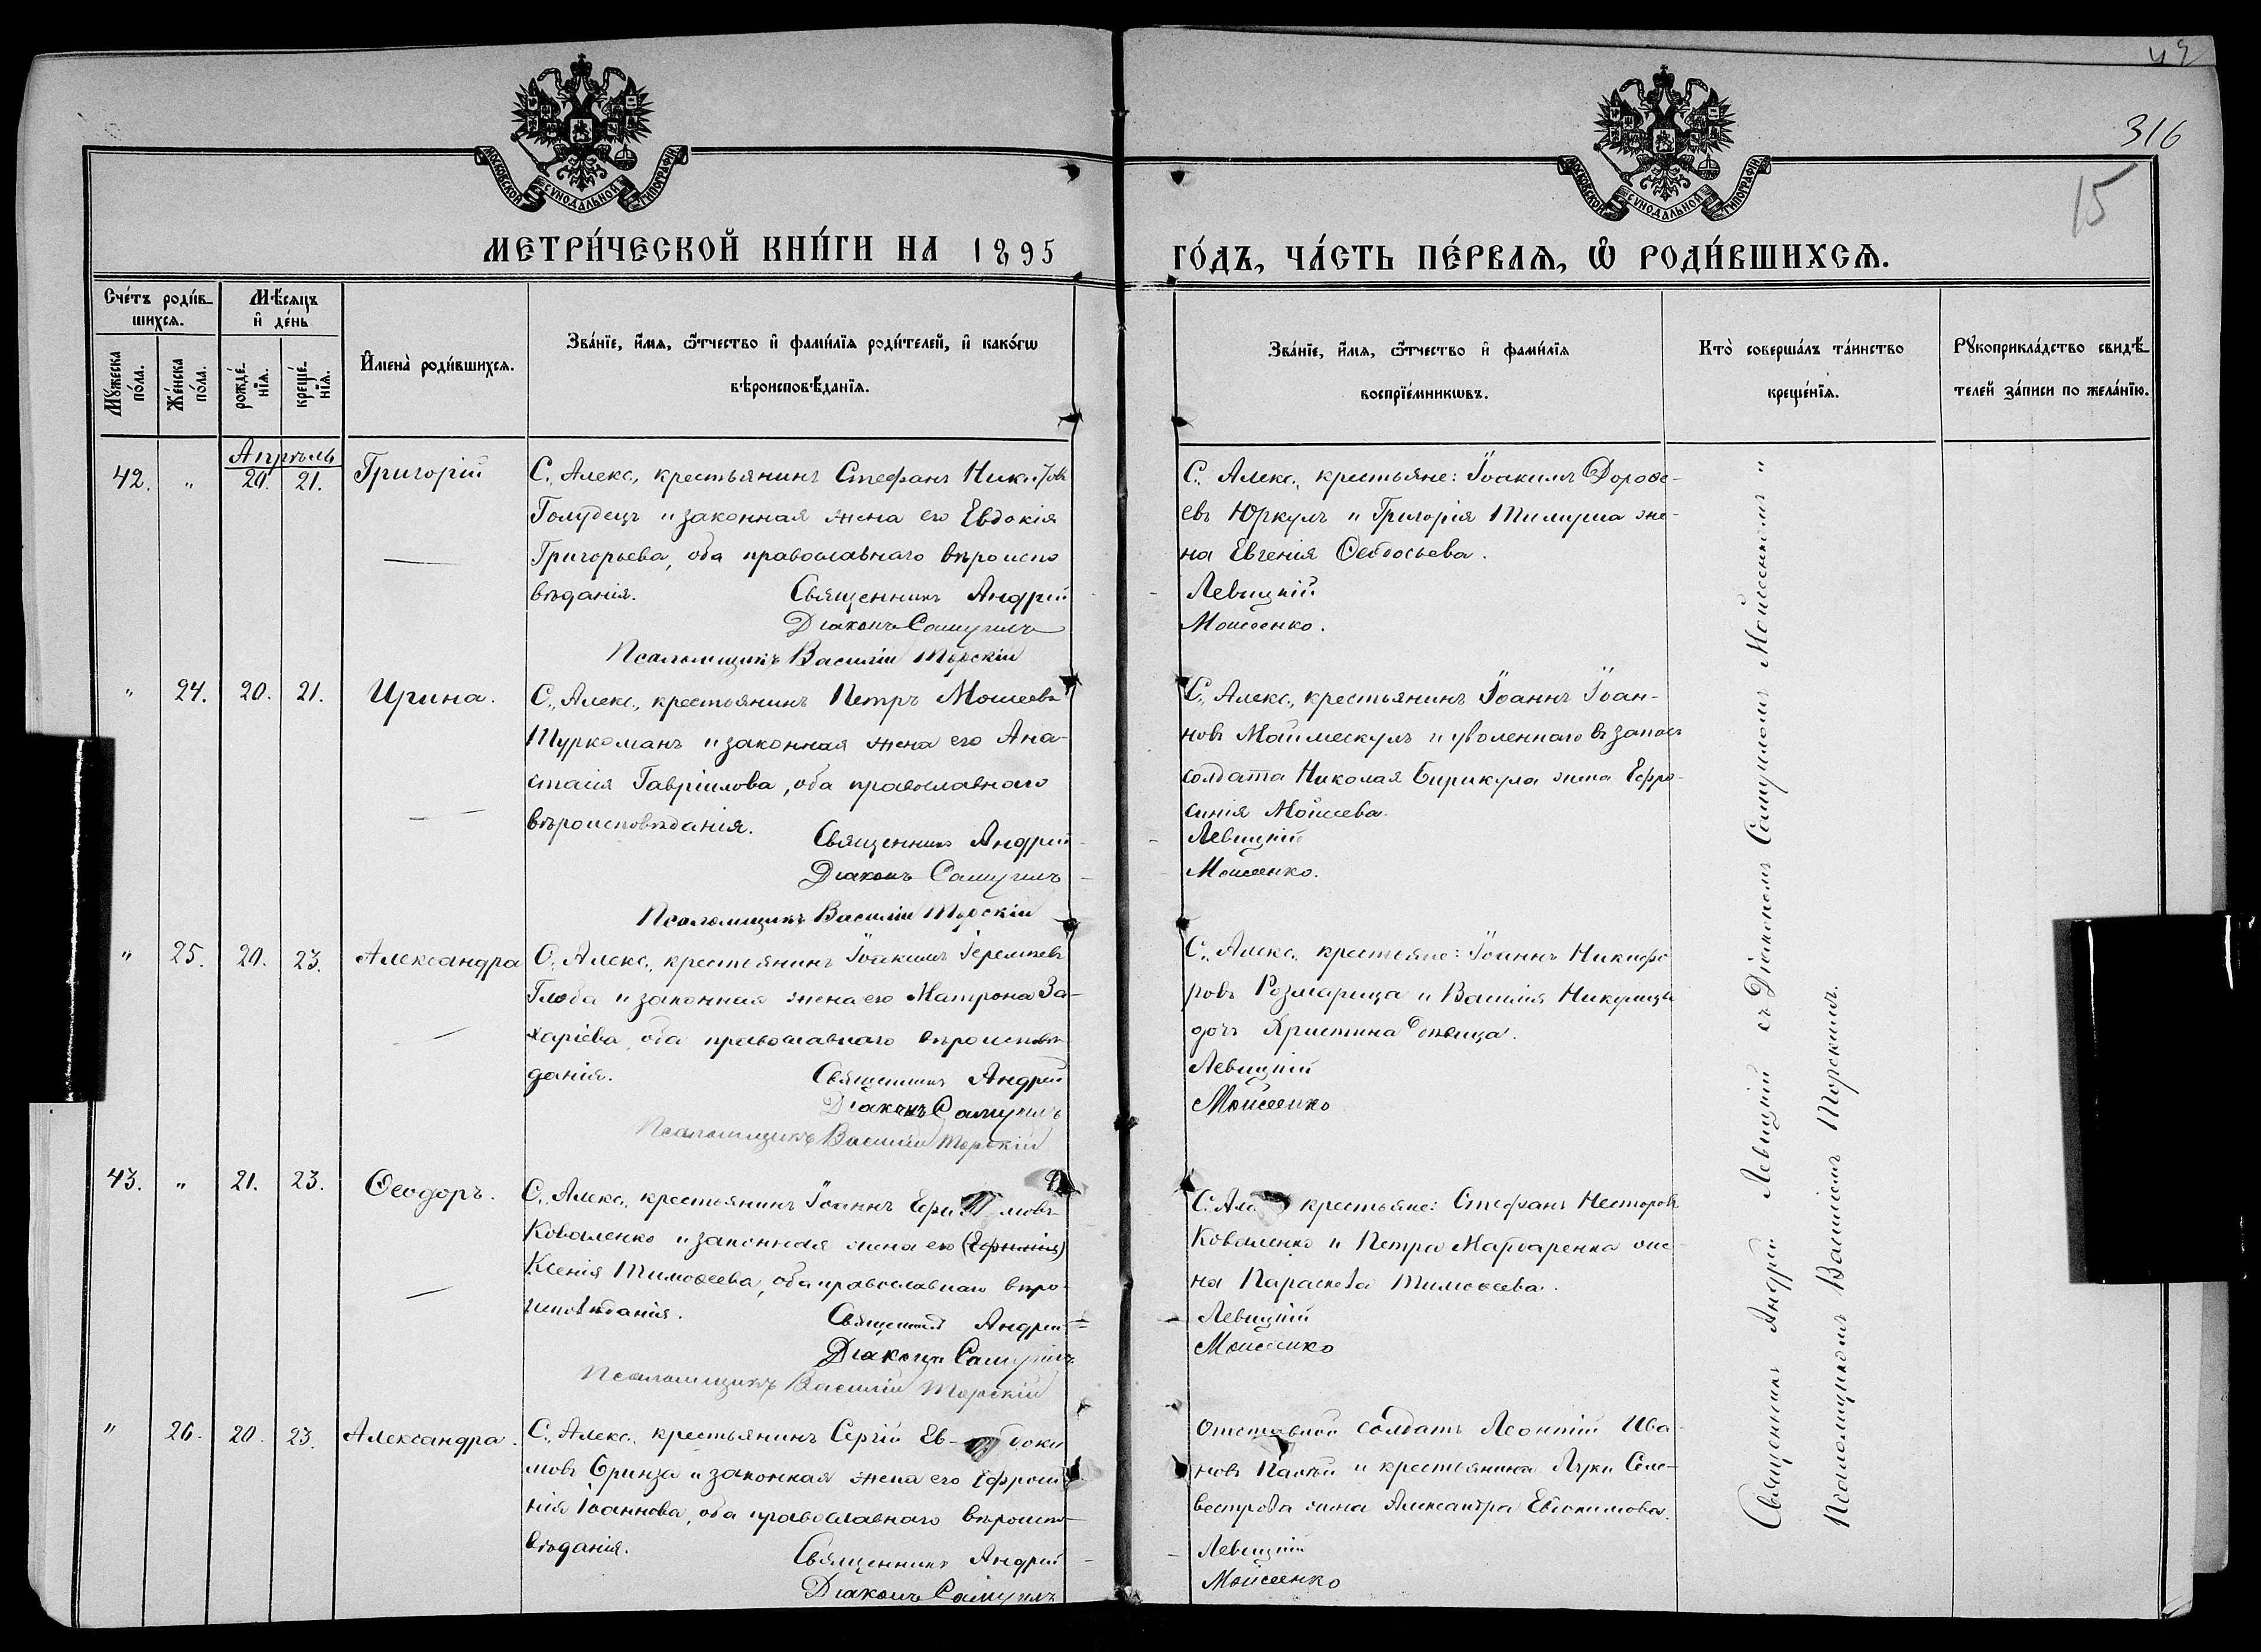 42
316
15
МОСКОВСКОЙ СУНОДАЛЬНОЙ ТИПОГРАФІИ
МОСКОВСКОЙ СУНОДАЛЬНОЙ ТИПОГРАФІИ
МЕТРИ́ЧЕСКОЙ КНИ́ГИ НА 1895
ГО́ДЪ, ЧА́СТЬ ПЕ́РВАѦ, Ѽ РОДИ́ВШИХСѦ.
Сче́тъ роди́в-
шихсѧ.
Мѣ́сѧцъ
и҆ де́нь
Мꙋ́жеска
по́ла.
Же́нска
по́ла.
рожде́-
нїѧ.
креще́-
нїѧ.
И҆мена̀ роди́вшихсѧ.
Зва́нїе, и҆́мѧ, ѻ҆́тчество и҆ фами́лїѧ роди́телей, и҆ како́гѡ
вѣроисповѣ́данїѧ.
Зва́нїе, и҆́мѧ, ѻ҆́тчество и҆ фами́лїѧ
воспрїе́мникѡвъ.
Кто̀ соверша́лъ та́инство
креще́нїѧ.
Рꙋкоприкла́дство свидѣ́-
телей за́писи по жела́нїю.
Апрѣль
42. " 20. 21. Григорій
С. Алекс., крестьянинъ Стефанъ Никит[овъ]
Голубецъ и законная жена его Евдокія
Григорьева, оба православнаго вѣроиспо
вѣданія. Священникъ Андрей
Діаконъ Самуилъ
Псаломщикъ Василій Торскій
С. Алекс., крестьяне: Іоакимъ Дорофе-
евъ Юркулъ и Григорія Тимуша же-
на Евгенія Ѳеодосьева.
Левицкій
Моисеенко.
" 24. 20. 21. Ирина.
С. Алекс., крестьянинъ Петръ Моисеевъ
Туркоманъ и законная жена его Ана-
стасія Гавріилова, оба православнаго
вѣроисповѣданія.
Священникъ Андрей
Діаконъ Самуилъ
Псаломщикъ Василій Торскій
С. Алекс., крестьянинъ Іоаннъ Іоан-
новъ Маймескулъ и уволеннаго въ запасъ
солдата Николая Бирикула жена Ефро-
синія Моисеева.
Левицкій
Моисеенко.
" 25. 20. 23. Александра
С. Алекс., крестьянинъ Іоакимъ Іереміевъ
Глоба и законная жена его Матрона За-
харіева, оба православнаго вѣроисповѣ
данія. Священникъ Андрей
Діаконъ Самуилъ
Псаломщикъ Василій Торскій
С. Алекс., крестьяне: Іоаннъ Никифо
ровъ Розмарица и Василія Никулица
дочь Христина дѣвица.
Левицкій
Моисеенко
43. " 21. 23. Ѳеодоръ.
С. Алекс., крестьянинъ Іоаннъ Ефимовъ
Коваленко и законная жена его
Ксенія Тимоѳеева, оба православнаго вѣро
исповѣданія. Священникъ Андрей
Діаконъ Самуилъ
Псаломщикъ Василій Торскій
С. Алекс. крестьяне: Стефанъ Несторовъ
Коваленко и Петра Макаренка же
на Параскева Тимоѳеева.
Левицкій
Моисеенко
" 26. 20. 23. Александра.
С. Алекс. крестьянинъ Сергій Ев-доки
мовъ Бринза и законная жена его Ефроси
нія Іоаннова, оба православнаго вѣроиспо-
вѣданія. Священникъ Андрей
Діаконъ Самуилъ
Отставной солдатъ Леонтій Ива
новъ Палій и крестьянина Луки Селе-
вестрова жена Александра Евдокимова.
Левицкій
Моисеенко
Священникъ Андрей Левицкій съ Діакономъ Самуиломъ Моисеенкомъ и
Псаломщикомъ Василіемъ Торскимъ.